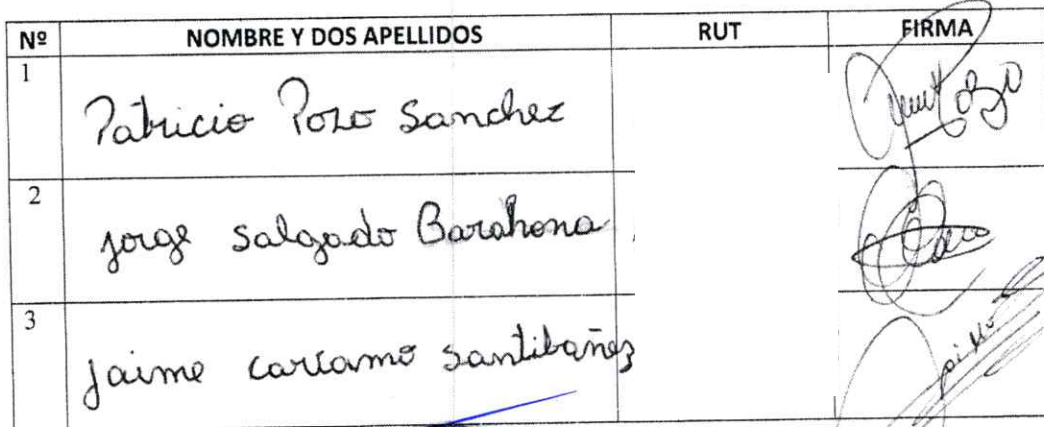 Nº NOMBRE Y DOS APELLIDOS RUT FIRMA
1 Patricio Pozo Sanchez
2 Jorge Salgado Barahona
3 Jaime Carcamo Santibañez